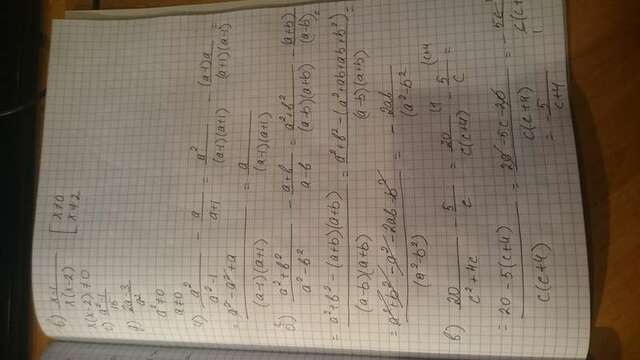 б) x-1 / x(x-2) [x≠0 x≠2
x(x-2)≠0
a²
a²≠0
a≠0
a² / a²-1 - a / a+1 = a² / (a-1)(a+1) - (a-1)a / (a+1)(a-1)
= a²-a²+a / (a-1)(a+1) = a / (a-1)(a+1)
б) a²+b² / a²-b² - a+b / a-b = a²+b² / (a-b)(a+b) - (a+b) / (a-b) =
= a²+b²-(a+b)(a+b) / (a-b)(a+b) = a²+b²-(a²+ab+ab+b²) / (a-b)(a+b) =
= a²+b²-a²-2ab-b² / (a²-b²) = - 2ab / (a²-b²)
в) 20 / c²+4c - 5 / c = 20 / c(c+4) - 5 / c (c+4 =
= 20-5(c+4) / c(c+4) = 20-5c-20 / c(c+4) = - 5c / c(c+
= - 5 / c+4